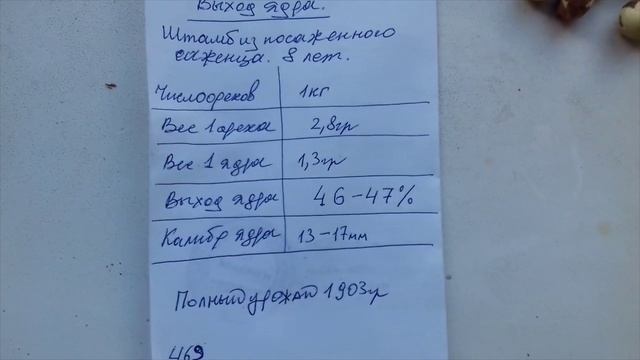 Выход ядра.
Штамб из посаженного
саженца. 8 лет.
Число орехов 1кг
Вес 1 ореха 2,8гр
Вес 1 ядра 1,3гр
Выход ядра 46-47%
Калибр ядра 13-17мм
Полный урожай 1903гр
469